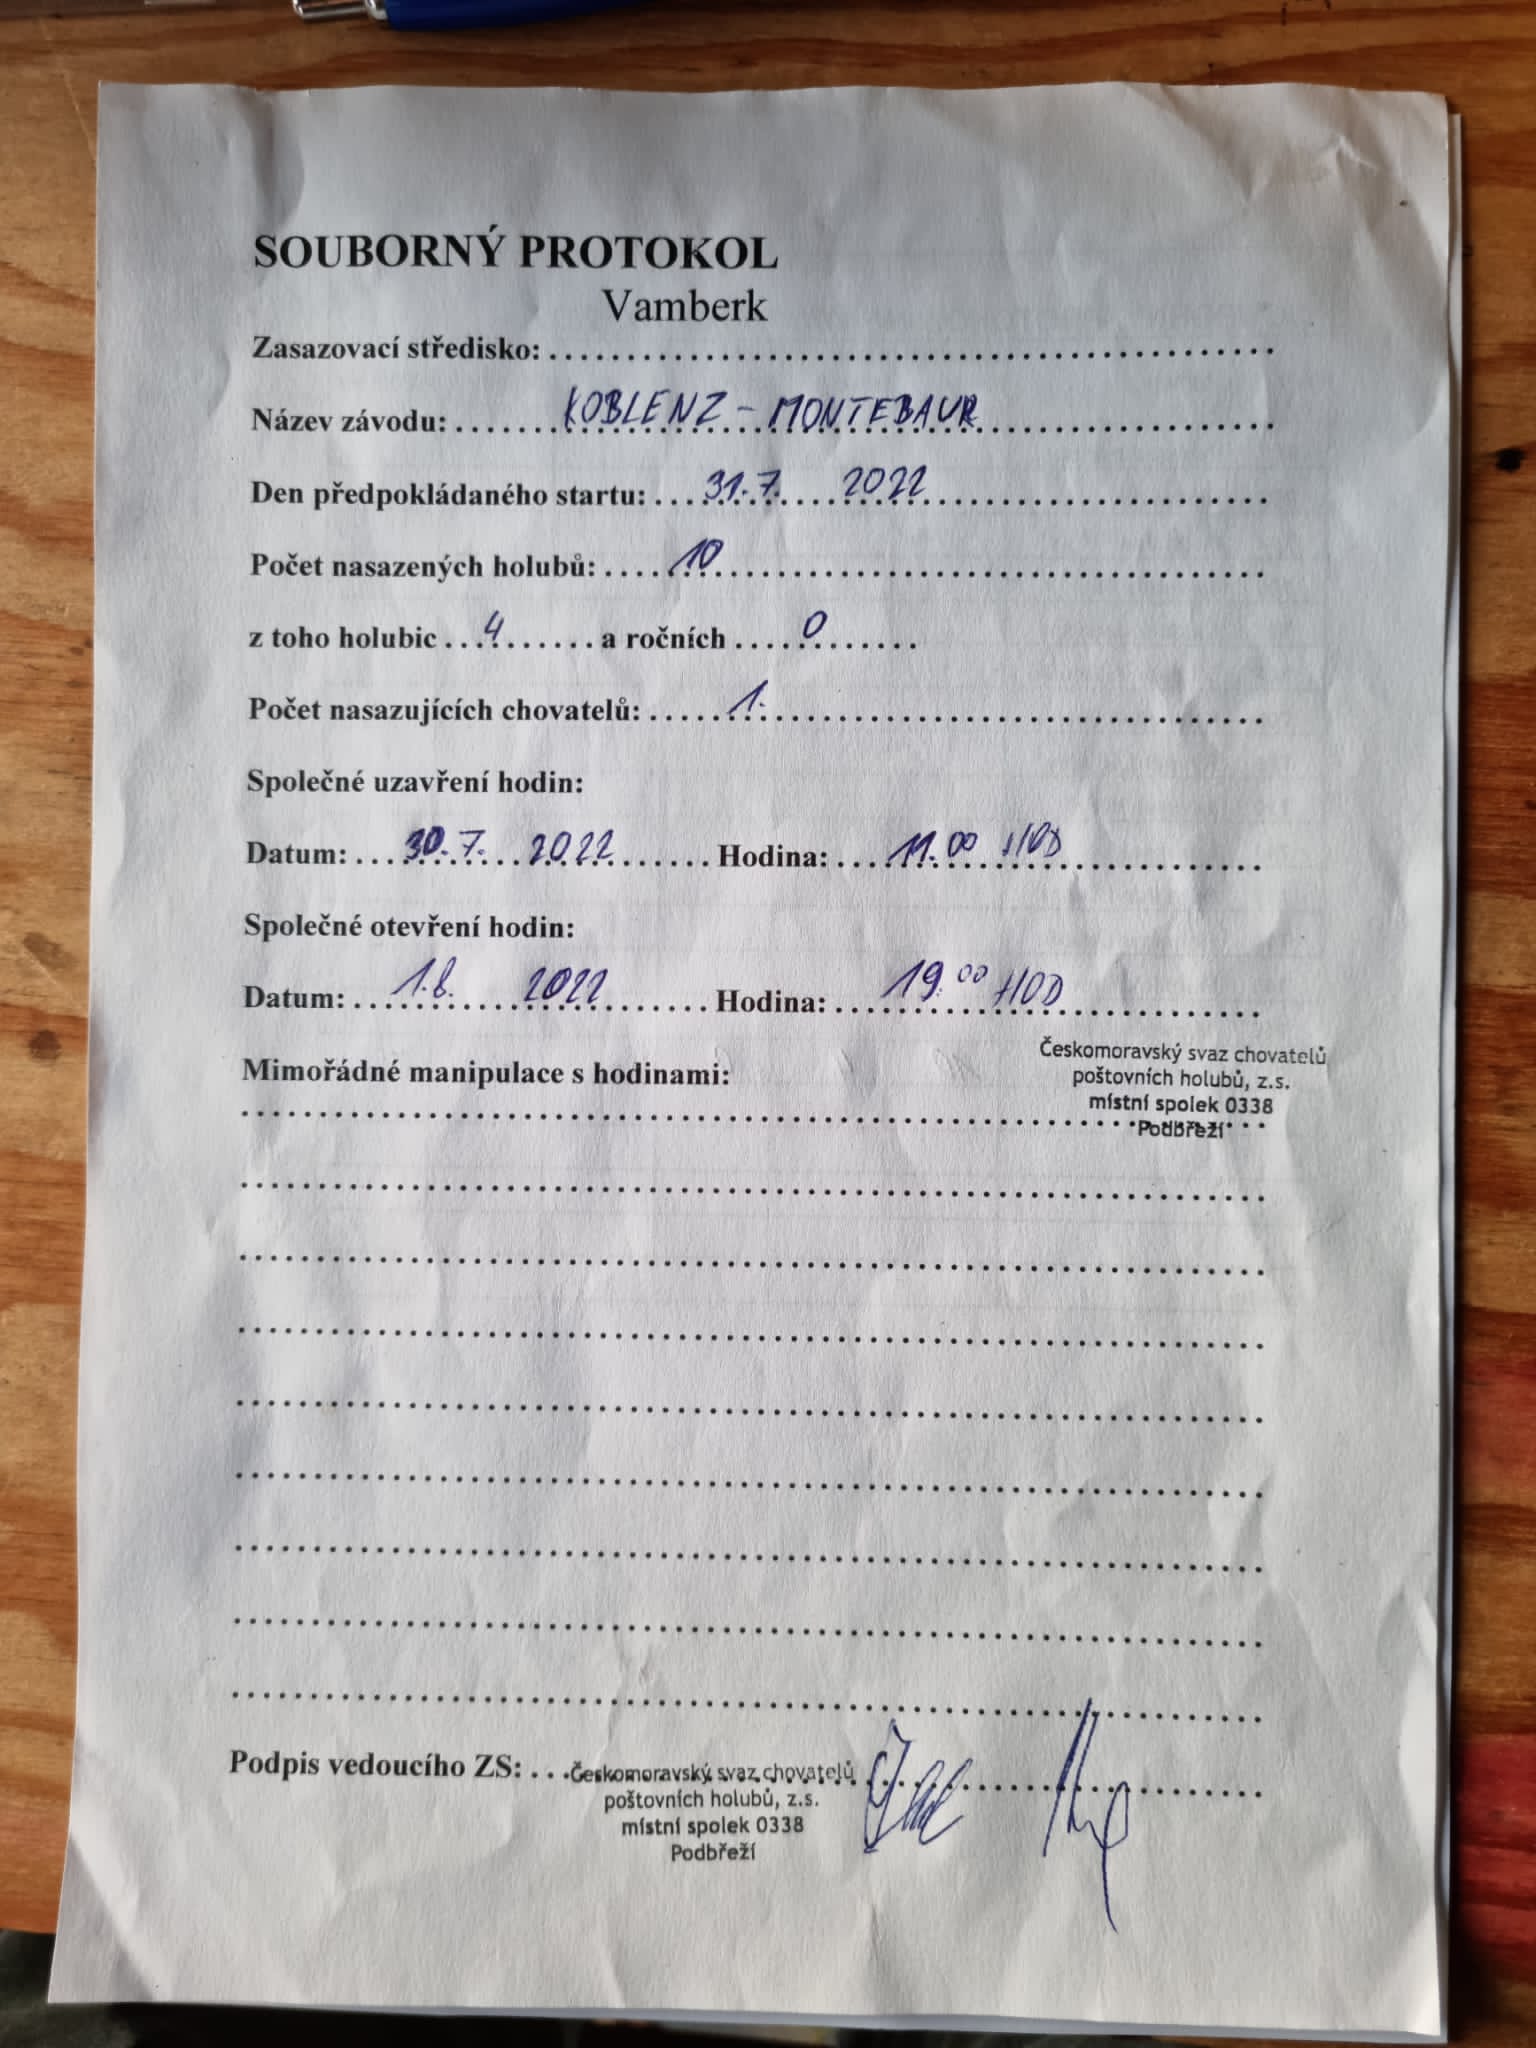 SOUBORNÝ PROTOKOL
Vamberk
Zasazovací středisko:
Název závodu: KOBLENZ - MONTEBAUR
Den předpokládaného startu: 31.7. 2022
Počet nasazených holubů: 10
z toho holubic 4 a ročních 0
Počet nasazujících chovatelů: 1.
Společné uzavření hodin:
Datum: 30.7. 2022 Hodina: 11.00 HOD
Společné otevření hodin:
Datum: 1.8. 2022 Hodina: 19.00 HOD
Mimořádné manipulace s hodinami:
Českomoravský svaz chovatelů
poštovních holubů, z.s.
místní spolek 0338
Podbřeží
Podpis vedoucího ZS:
Českomoravský svaz chovatelů
poštovních holubů, z.s.
místní spolek 0338
Podbřeží